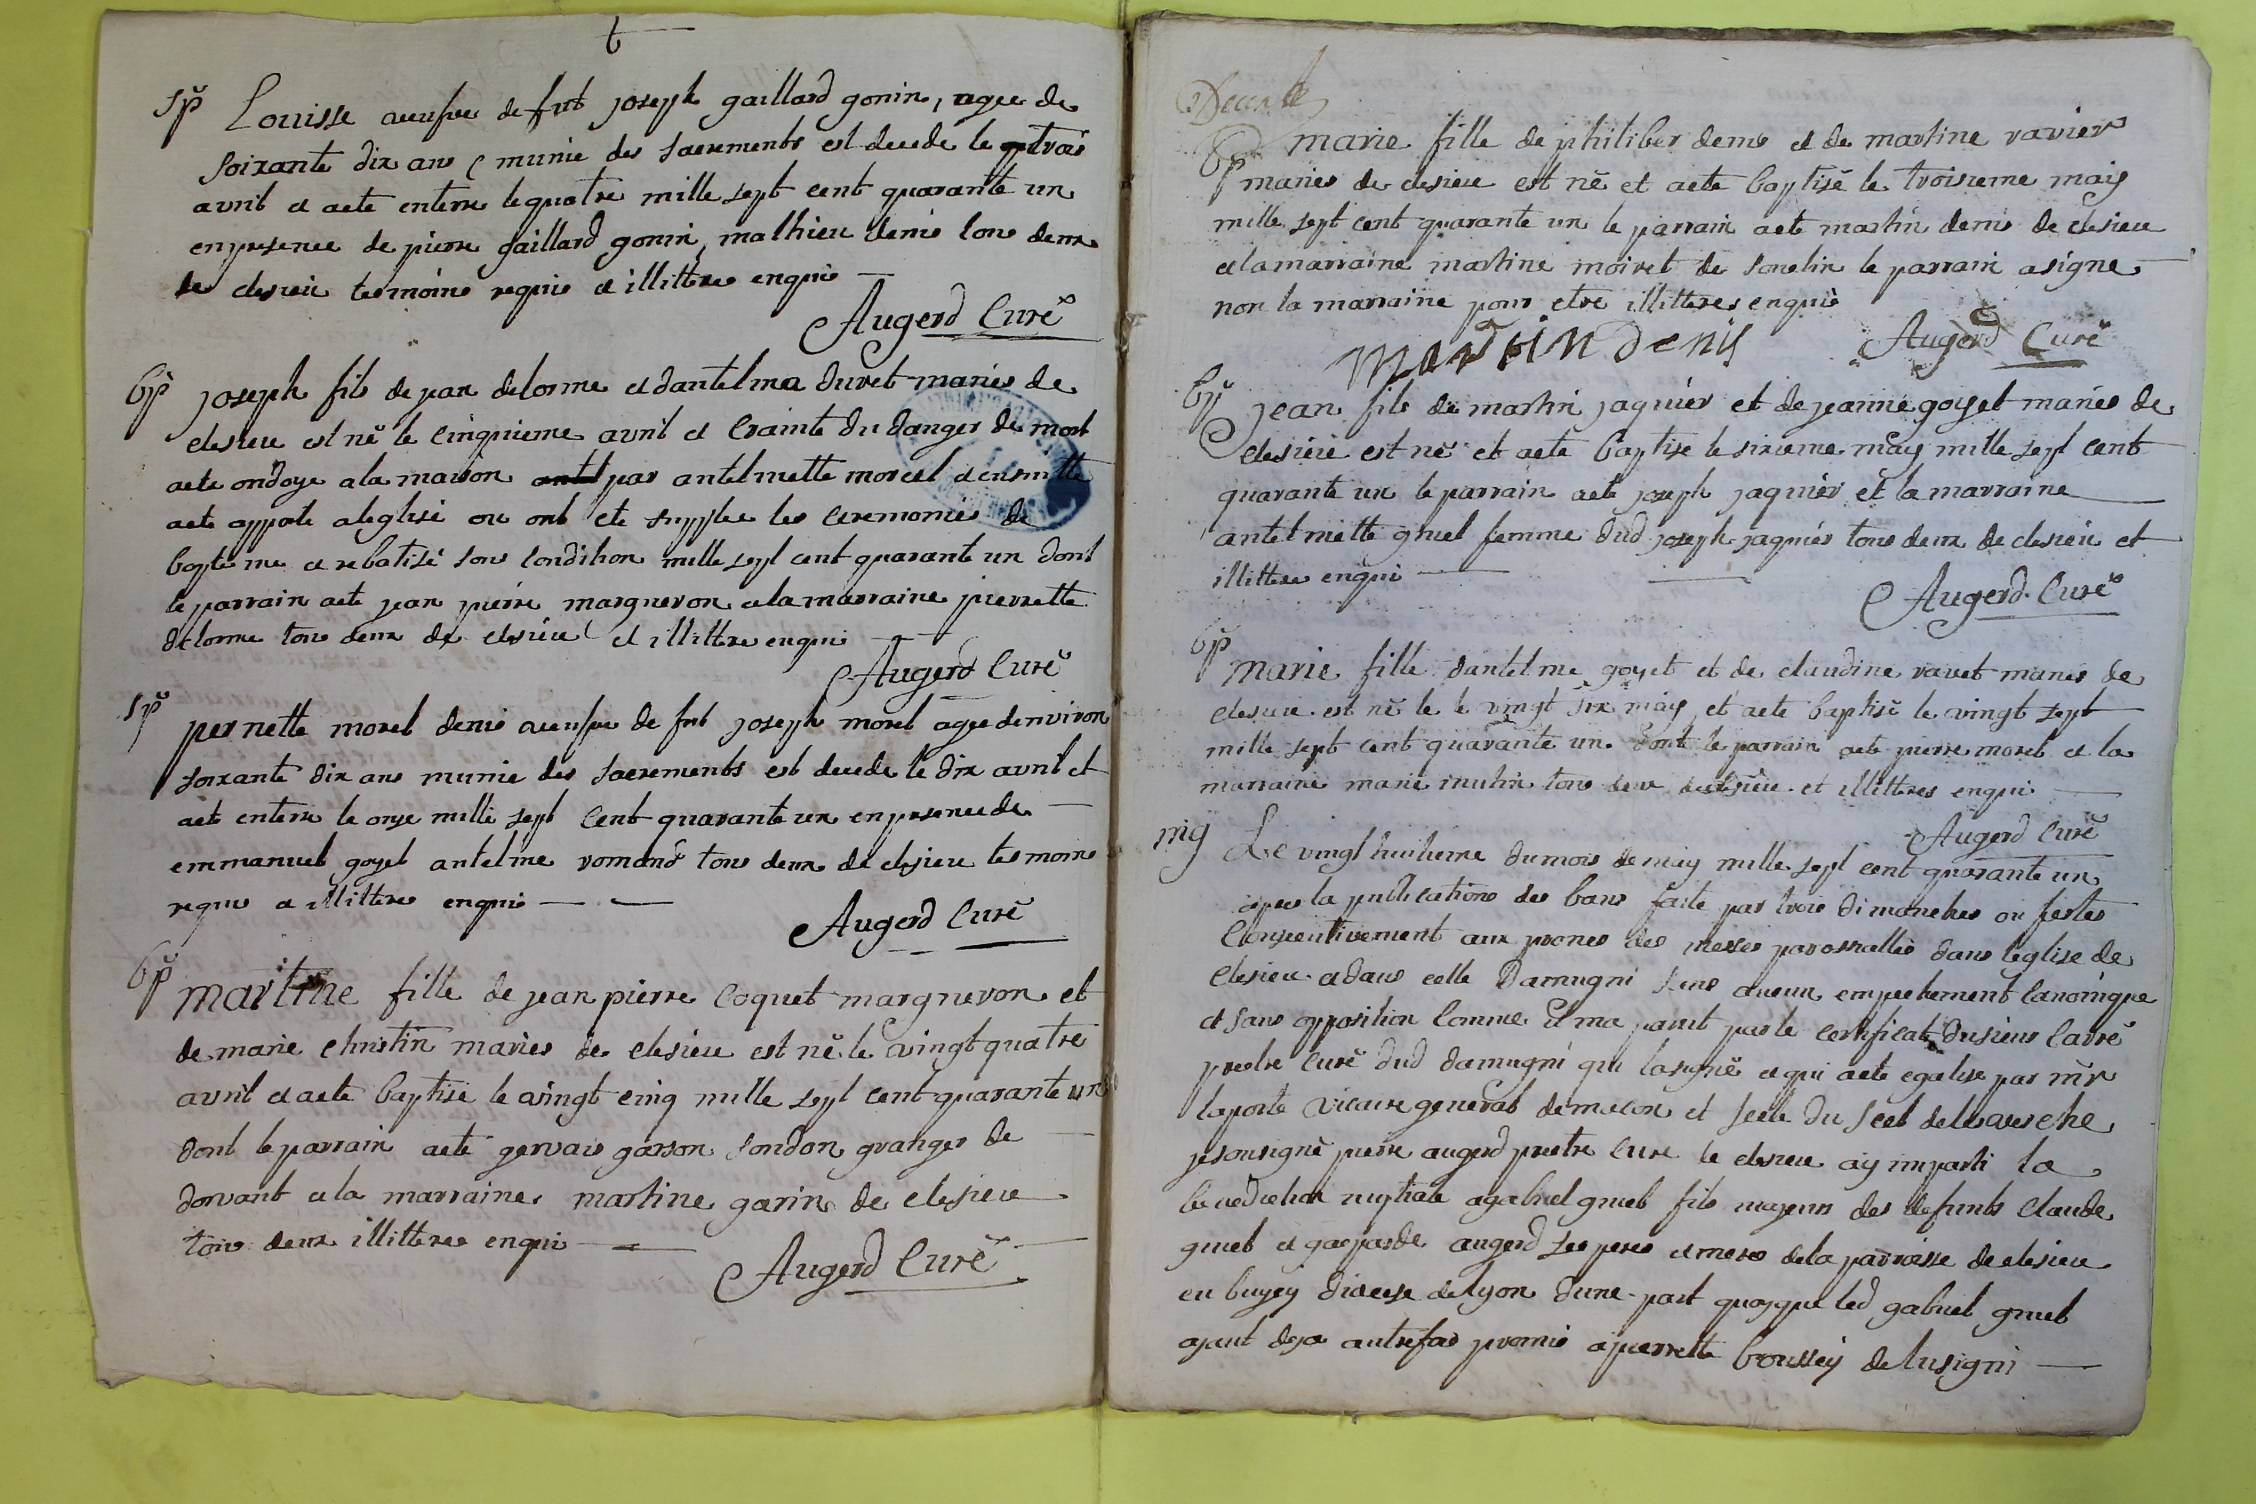 t
sp Louisse veufve de fut joseph gaillard gonin, agee de
soixante dix ans munie des sacrements est decede le trois
avril et aete enterre le quatre mille sept cent quarante un
en presence de pierre gaillard gonin, mathieu denis tous deux
de clesieu tesmoins requis et illittres enquis
Augerd Curé
bp joseph fils de jean delorme et dantelma duret maries de
clesieu est né le cinquieme avril et crainte du danger de mort
aete ondoye a la maison par antelmette morel et ensuitte
aete apporte a leglise ou ont ete supplee les ceremonies de
bapteme et rebatisé sous condition mille sept cent quarante un dont
le parrain aete jean pierre margueron et la marraine pierrette
delorme tous deux de clesieu et illittre enqui
Augerd Curé
sp pernette morel denis veufve de fut joseph morel agee denviron
soixante dix ans munie des sacrements est decede le dix avril et
aete enterre le onze mille sept cent quarante un en presence de
emmanuel goyet antelme romand tous deux de clesieu tesmoins
requis et illittres enquis
Augerd Curé
bp martine fille de jean pierre coquet margueron et
de marie christin maries de clesieu est né le vingt quatre
avril et aete baptisé le vingt cinq mille sept cent quarante un
dont le parrain aete gervais garson sondon granger de
dorvant et la marraine martine garin de clesieu
tous deux illittres enqui
Augerd Curé
bp marie fille de philiber denis et de martine ravier
maries de clesieu est né et aete baptisé le troisieme may
mille sept cent quarante un le parrain aete martin denis de clesieu
et la marraine martine moiret de sonelin le parrain a signe
non la marraine pour etre illittere enquis
martin denis Augerd Curé
bp jean fils de martin jaquier et de jeanne goyet maries de
clesieu est né et aete baptise le sixieme may mille sept cent
quarante un le parrain aete joseph jaquier et la marraine
antelmette gruel femme dud joseph jaquier tous deux de clesieu et
illittere enqui
Augerd Curé
bp marie fille dantelme goyet et de claudine ravet maries de
clesieu est né le le vingt six may et aete baptisé le vingt sept
mille sept cent quarante un dont le parrain aete pierre morel et la
marraine marie mutin tous deux de clesieu et illitteres enqui
Augerd Curé
mg Le vingt huitieme du mois de may mille sept cent quarante un
apres la publications des bans faite par trois dimanches ou festes
consecutivement aux prones des messes paroissalles dans leglise de
clesieu et dans celle damugni sans aucun empechement canonique
et sans opposition comme il ma parut par le certificat du sieur Carré
prestre curé dud damugni qui la signé et qui aete egalise par mr
laporte vicaire general de macon et scele du scel de levesche
je sousigné pierre augerd prestre cure de clesieu ay imparti la
benediction nuptiale a gabriel gruel fils majeur des defunts claude
gruel et gasparde augerd ses pere et mere de la parroisse de clesieu
en bugey diocese de lyon dune part quoyque led gabriel gruel
ayant deja autrefois promis a pierrette boussey de lusigni